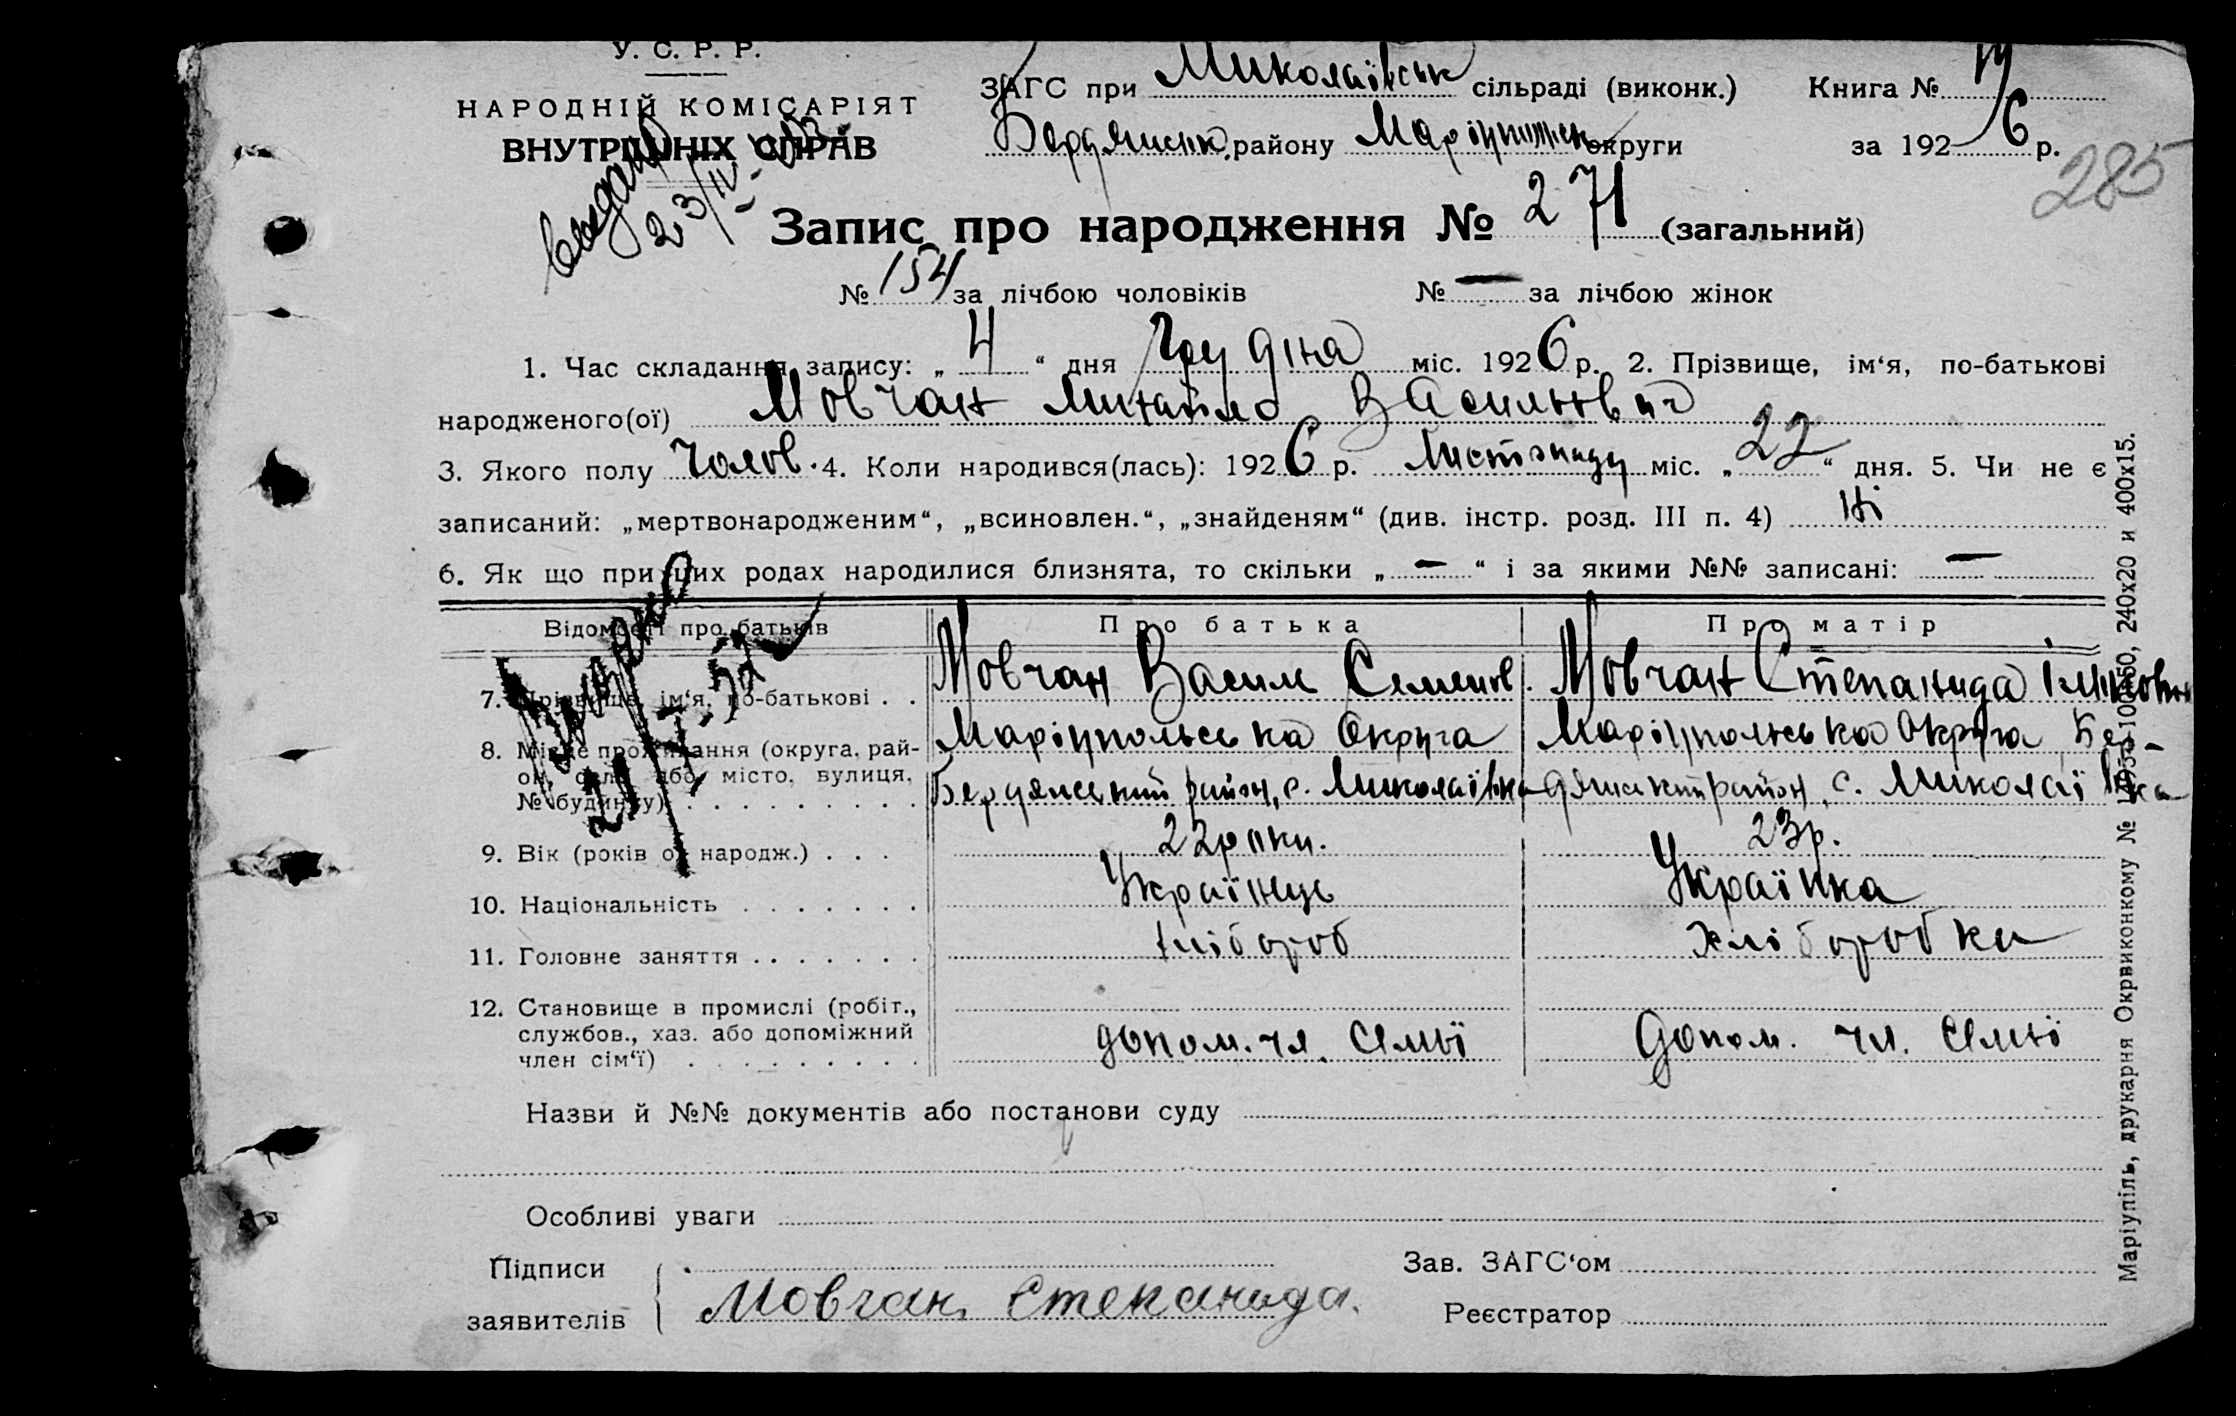 У. С. Р. Р.
НАРОДНІЙ КОМІСАРІЯТ
ВНУТРІШНІХ СПРАВ
ЗАГС при Миколаївськ сільраді (виконк.) Книга №
Бердянськ. району Маріупільськ округи за 1926 р.
285
видано
23/IV-
Запис про народження № 271 (загальний)
№ 154 за лічбою чоловіків № — за лічбою жінок
1. Час складання запису: „ 4 “ дня Грудня міс. 1926 р. 2. Прізвище, ім‘я, по-батькові
народженого(ої) Мовчан Михайло Васильович
3. Якого полу Чолов. 4. Коли народився(лась): 1926 р. Листопаду міс. „ 22 “ дня. 5. Чи не є
записаний: „мертвонародженим“, „всиновлен.“, „знайденям“ (див. інстр. розд. III п. 4) Ні
6. Як що при цих родах народилися близнята, то скільки „ — “ і за якими №№ записані: —
Відомості про батьків Про батька Про матір
7. Прізвище, ім‘я, по-батькові . . Мовчан Васил Семенов. Мовчан Степанида
8. Місце проживання (округа, рай- Маріупольська Округа Маріупольська Округа Бер-
он, село або місто, вулиця, Бердянський район, с. Миколаївка дянський район, с. Миколаївка
№ будинку) . . . . . . . . .
видано
21/I-52
9. Вік (років од народж.) . . . 22 роки. 23 р.
10. Національність . . . . . . . Українець Українка
11. Головне заняття . . . . . . . хлібороб Хліборобка
12. Становище в промислі (робіт.,
службов., хаз. або допоміжний
член сім‘ї) . . . . . . . . . допом. чл. Семьї Допом. чл. Семьї
Назви й №№ документів або постанови суду
Особливі уваги
Підписи Зав. ЗАГС‘ом
заявителів Мовчан Степанида. Реєстратор
Маріупіль, друкарня Окрвиконкому № 240х20 и 400х15.